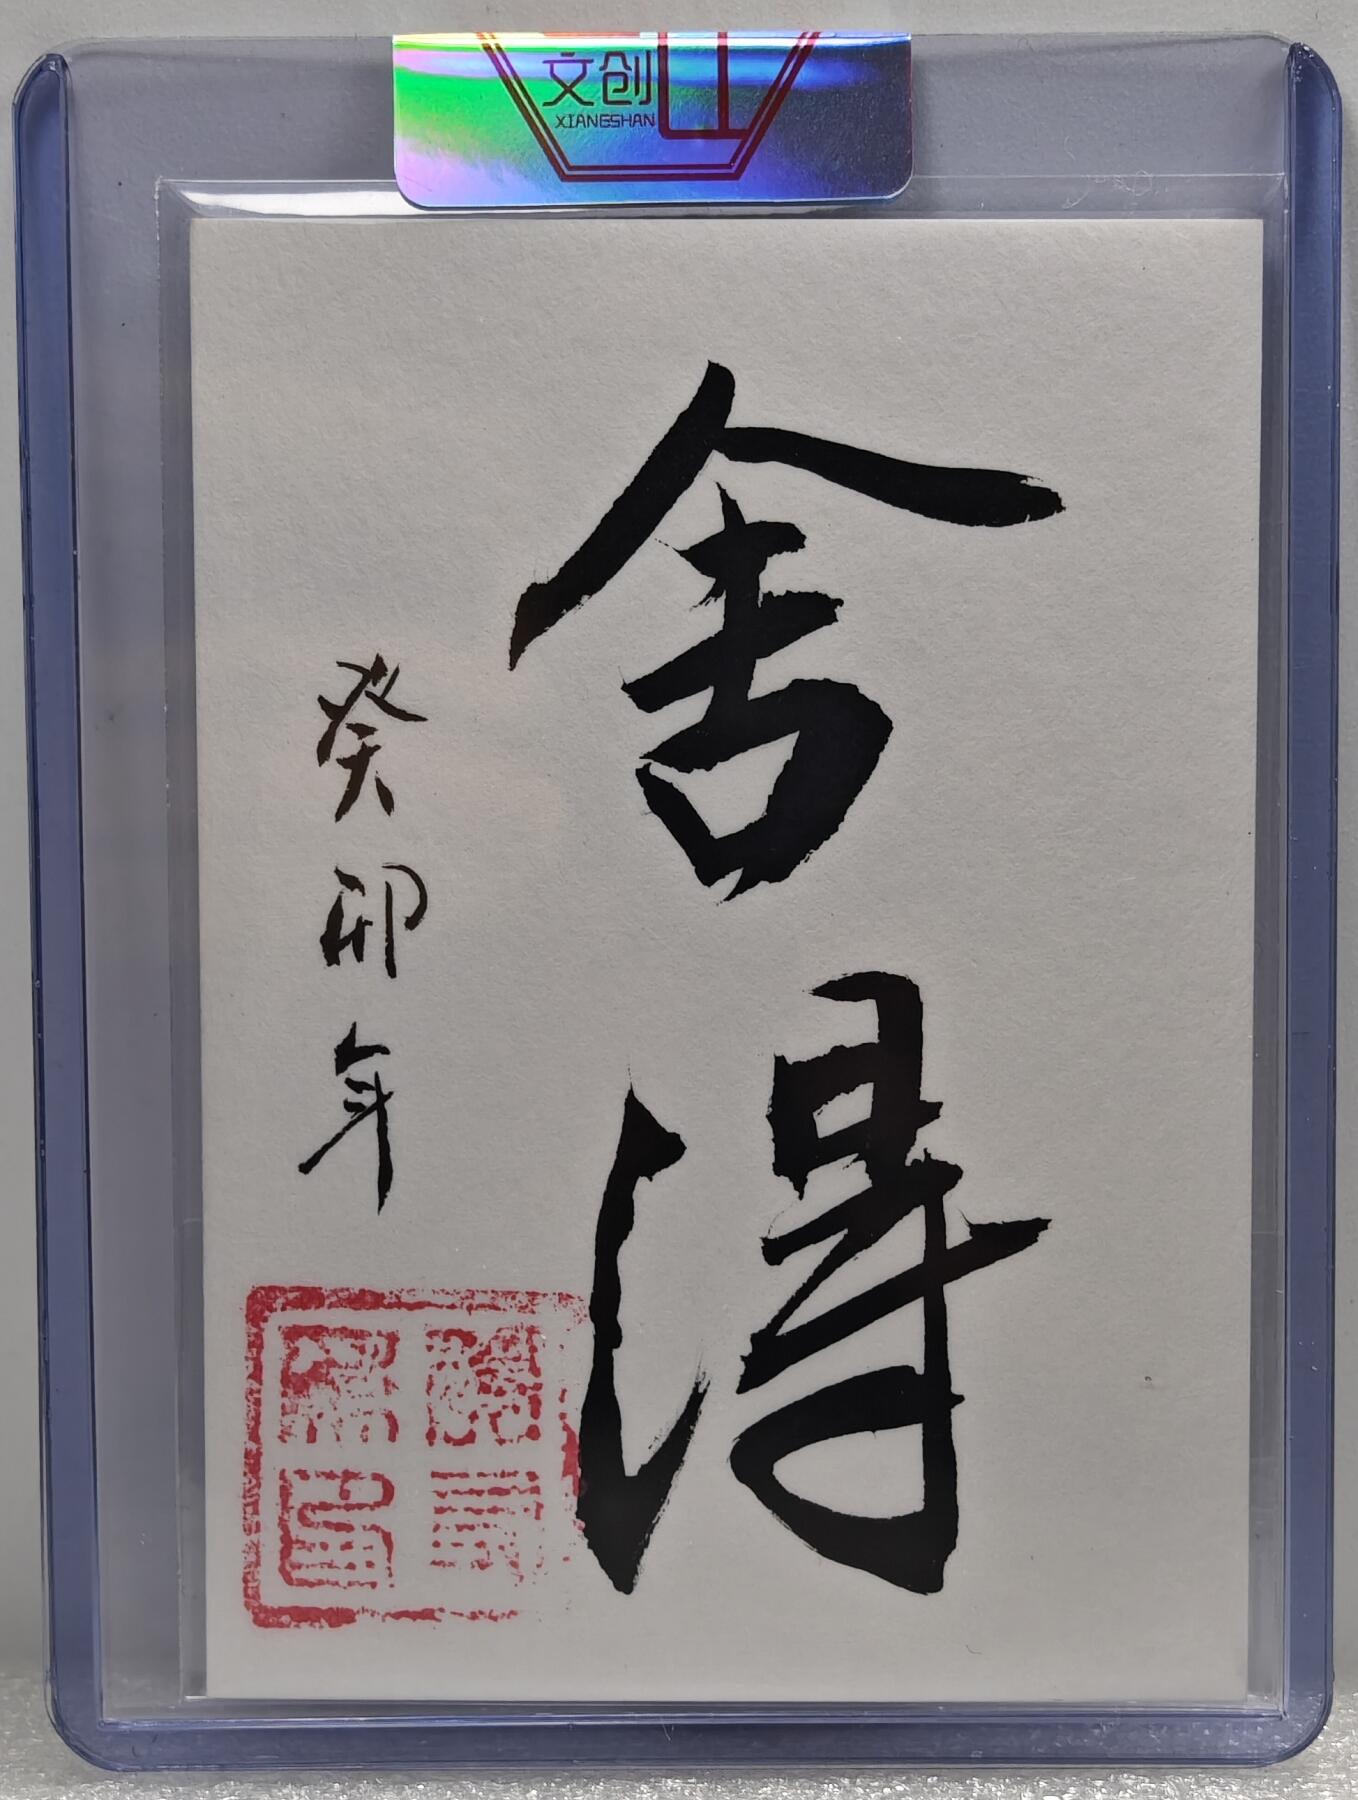 文创
XIANGSHAN
舍得
癸卯年